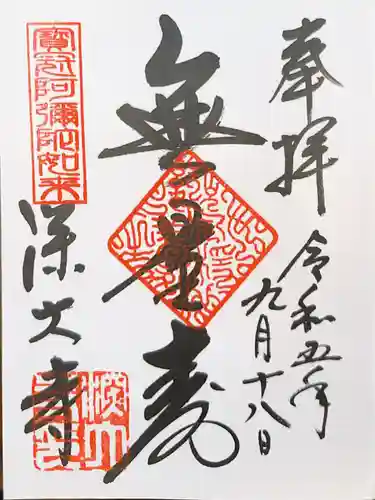 奉拝
令和五年
九月十八日
無量壽
寶冠阿彌陀如来
深大寺